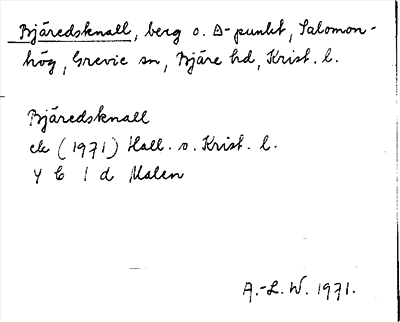 Bjäredsknall, berg o. Δ-punkt, Salomon-
hög, Grevie sn, Bjäre hd, Krist. l.
Bjäredsknall
ek (1971) Hall. o. Krist. l.
4 C 1 d Malen
A.-L. W. 1971.